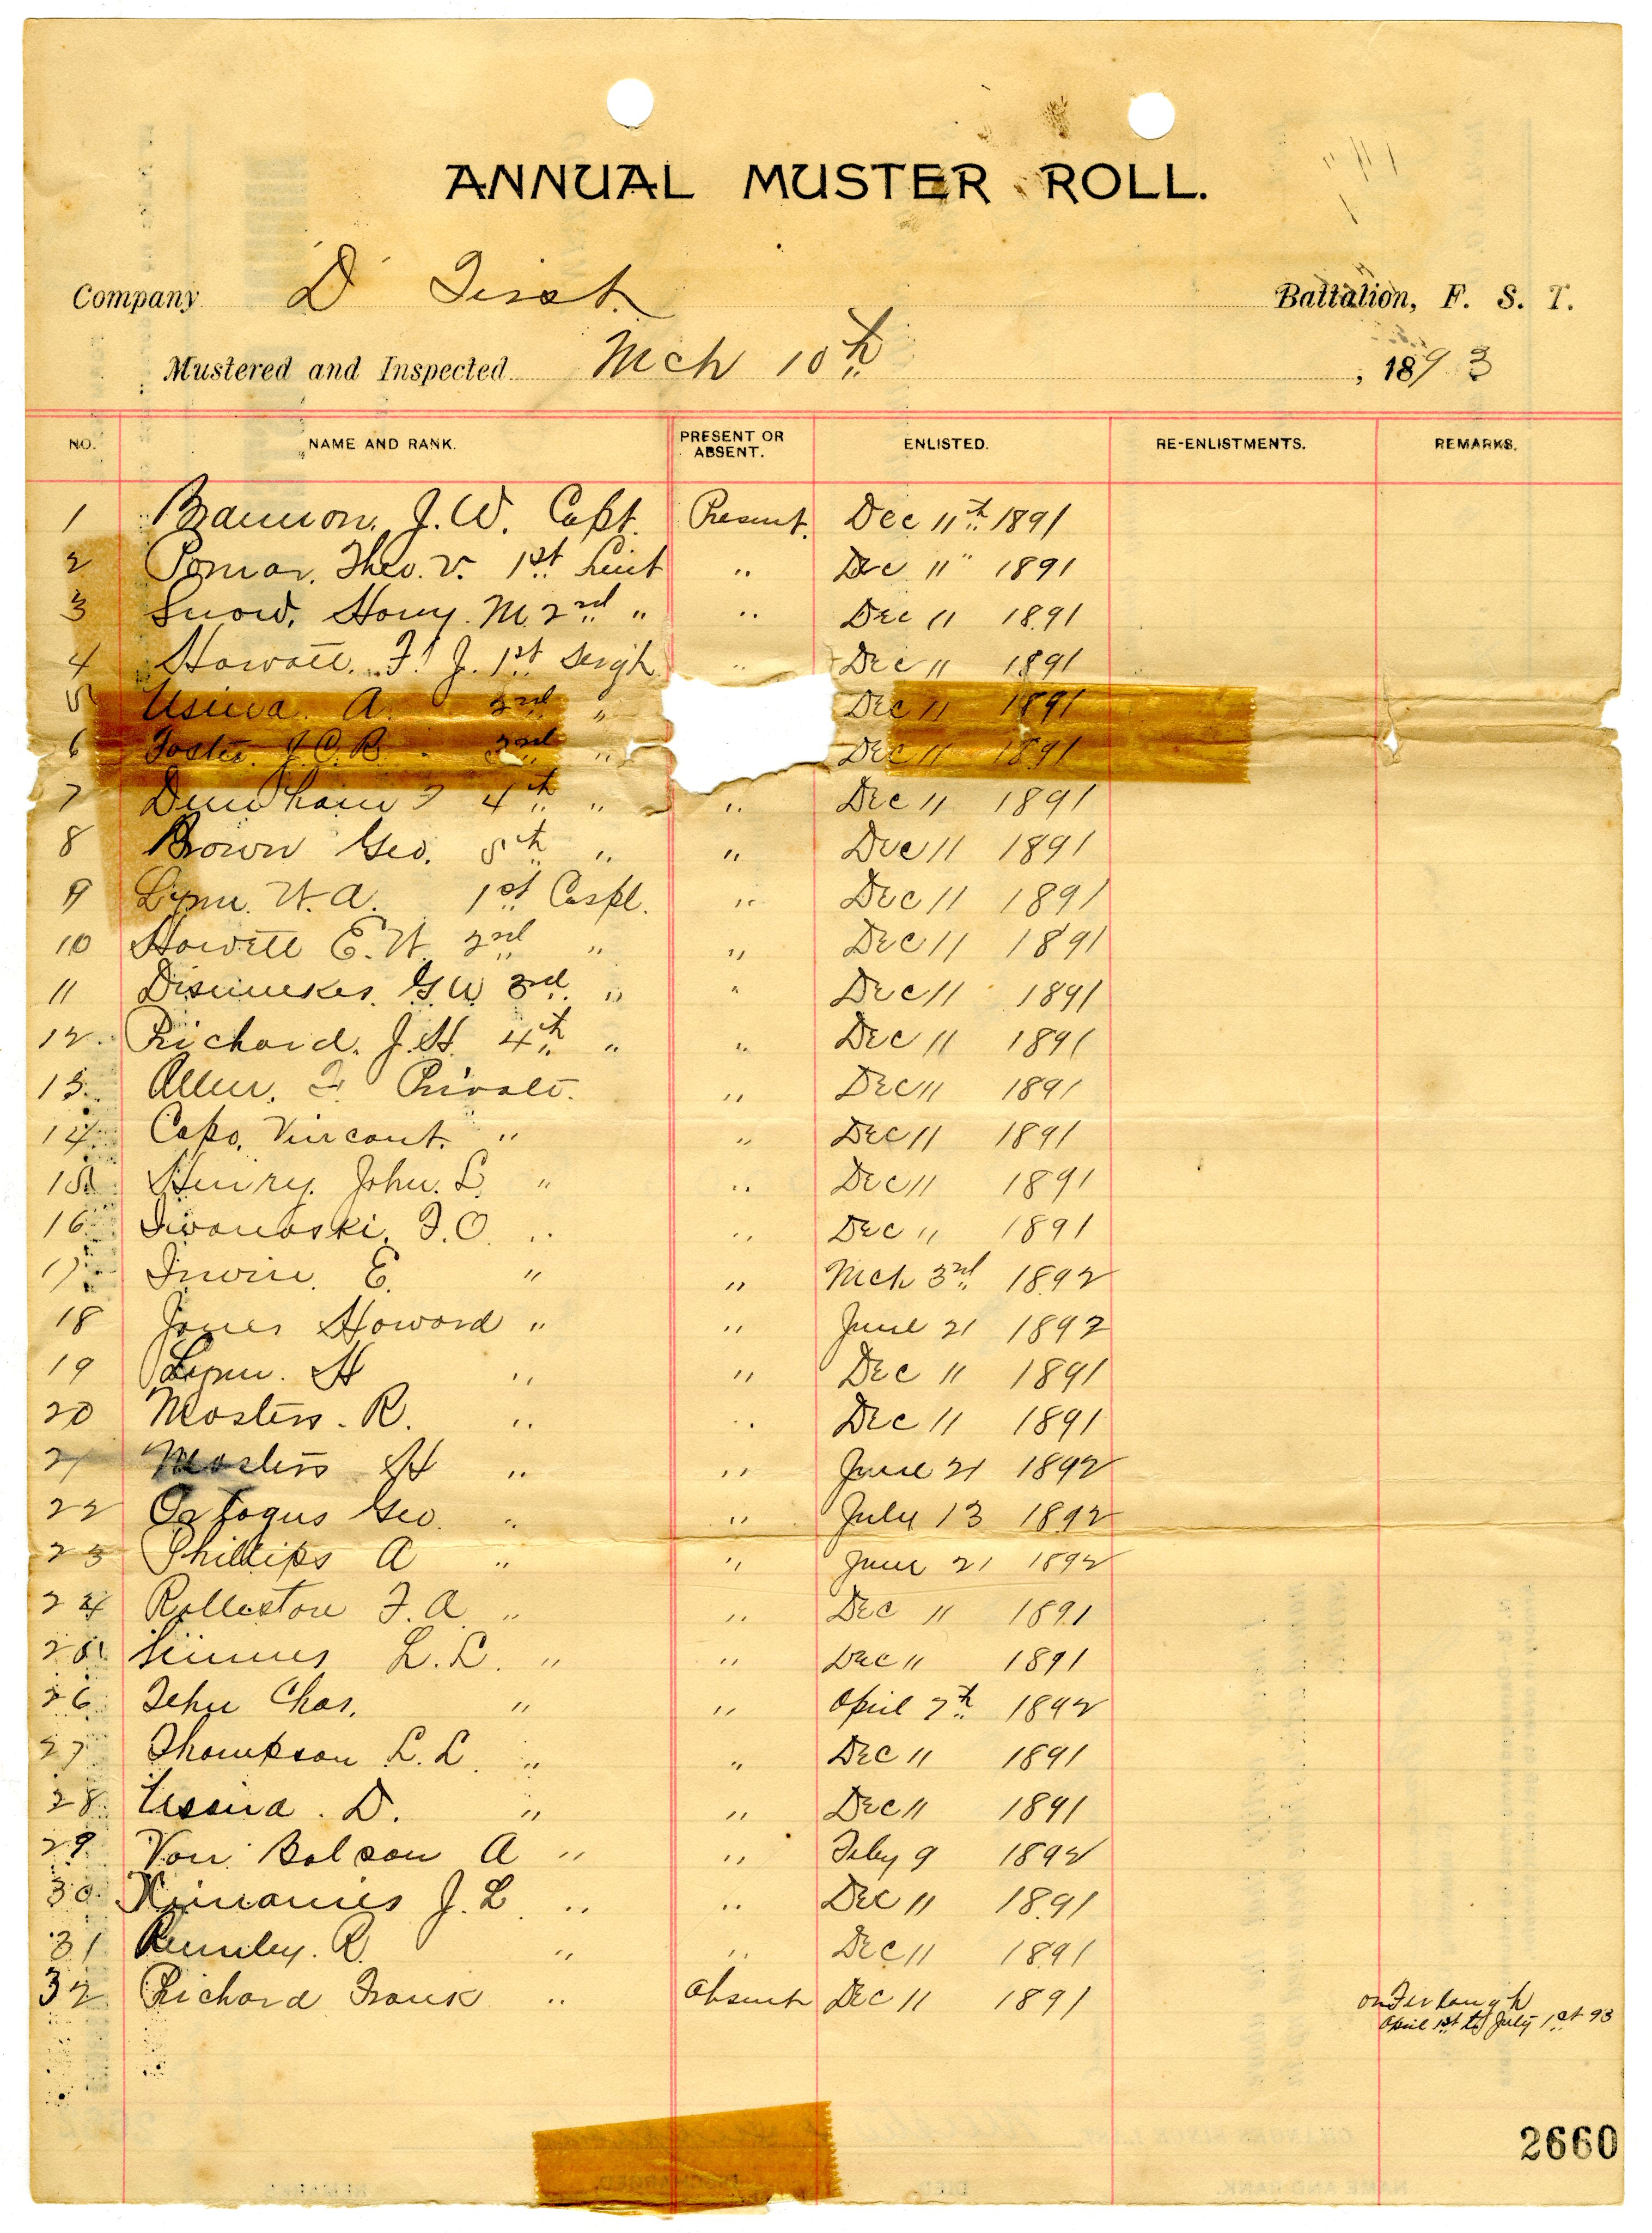 ANNUAL MUSTER ROLL.
Company "D" First Battalion, F. S. T.
Mustered and Inspected Mch 10th, 1893
NO. NAME AND RANK. PRESENT OR ABSENT. ENLISTED. RE-ENLISTMENTS. REMARKS.
1 Brannon, J. W. Capt. Present. Dec 11th 1891
2 Pomar, Theo. V. 1st Leiut " Dec 11" 1891
3 Snow, Harry. M. 2nd " " Dec 11 1891
4 F. J. 1st " Dec 11 1891
5 Usina A. 2nd " Dec 11 1891
6 Foster J. C. R. 3rd " Dec 11 1891
7 Dunham 4th " " Dec 11 1891
8 Brown Geo. 5th " " Dec 11 1891
9 Lynn. W. A. 1st Corpl. " Dec 11 1891
10 Howatt E. W. 2nd " " Dec 11 1891
11 Dismukes. G. W 3rd " " Dec 11 1891
12. Richard. J. H. 4th " " Dec 11 1891
13. Allen. F. Private. " Dec 11 1891
14 Capo. Vincent. " " Dec 11 1891
15 Henry. John. L. " " Dec 11 1891
16 Iwanoski. F. O. " " Dec 11 1891
17 Irwin. E. " " Mch 3rd 1892
18 Jones Howard " " June 21 1892
19 Lynn. H " " Dec 11 1891
20 Masters. R. " " Dec 11 1891
21 Masters H " " June 21 1892
22 Ortagus Geo. " " July 13 1892
23 Phillips A " " June 21 1892
24 Rolleston F. A. " " Dec 11 1891
25 L. L. " " Dec 11 1891
26 Chas. " " April 7th 1892
27 Thompson L. L. " " Dec 11 1891
28 Ussina. D. " " Dec 11 1891
29 Von Balson A " " Feby 9 1892
30 Ximanies J. L. " " Dec 11 1891
31 Rumley. R. " " Dec 11 1891
32 Richard Frank " Absent Dec 11 1891 on Furlough
April 1st to July 1st 93
2660